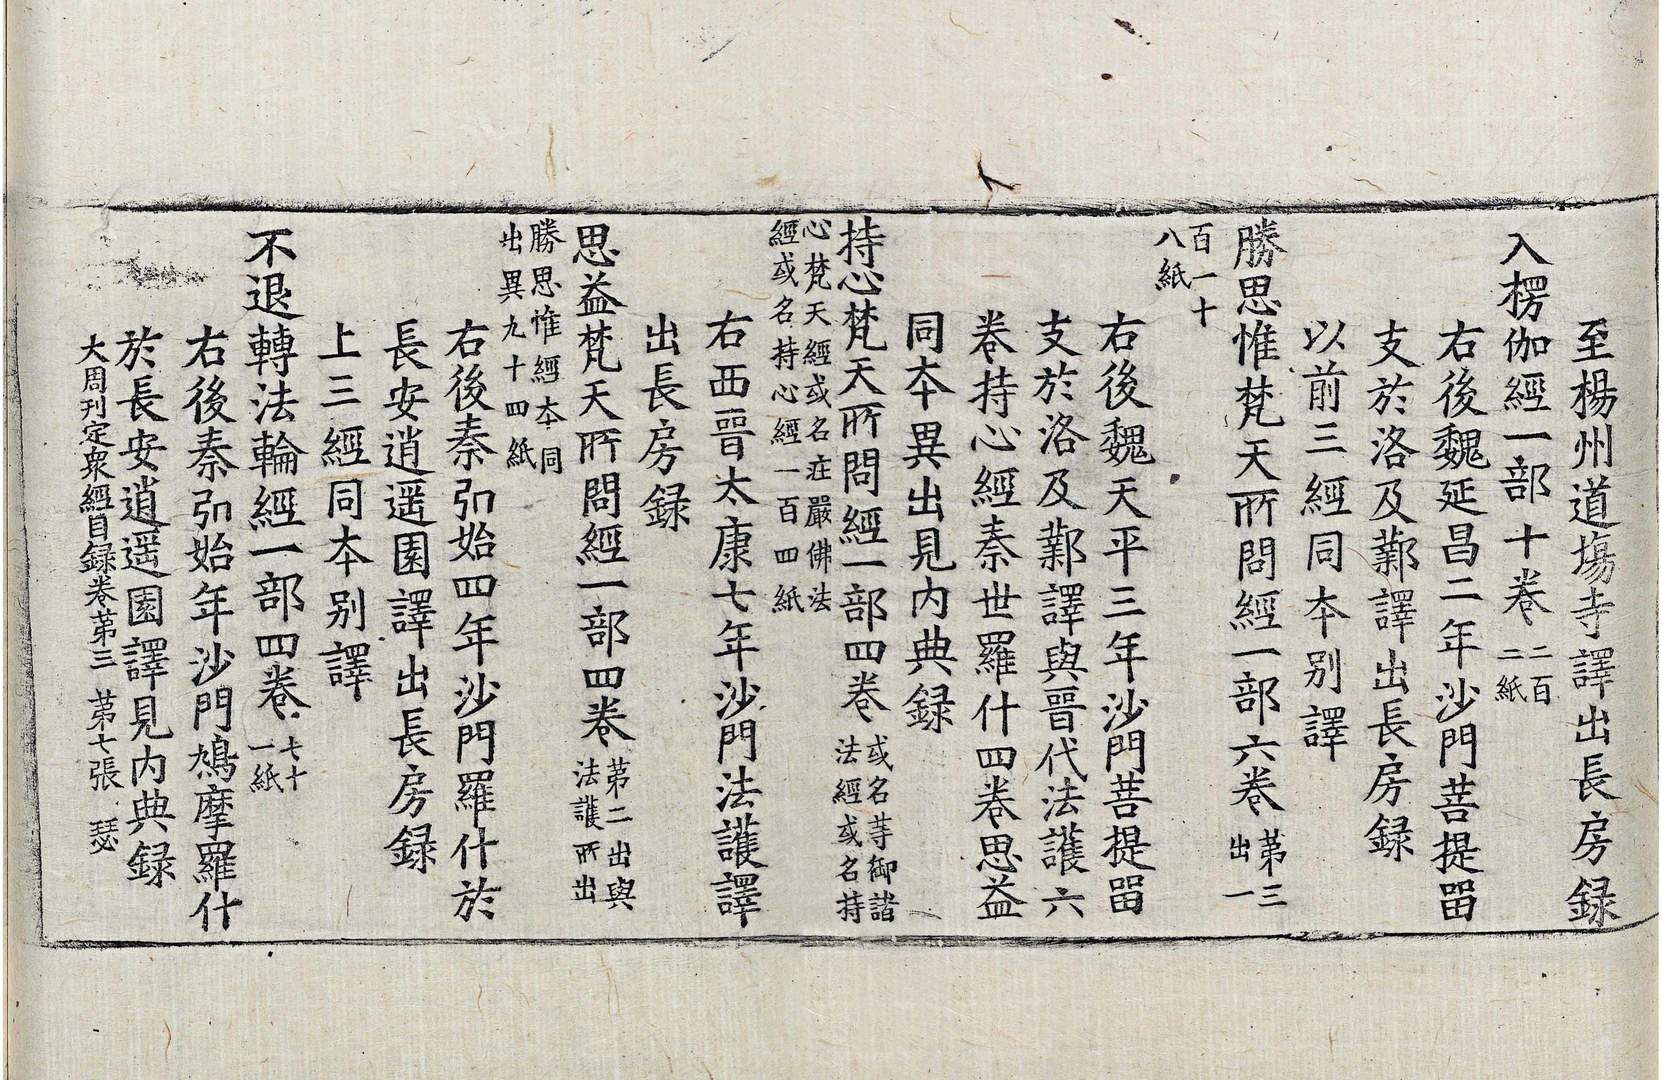 至楊州道場寺譯出長房録
入楞伽經一部十卷二百二紙
右後魏延昌二年沙門菩提畱
支於洛及鄴譯出長房録
以前三經同本别譯
勝思惟梵天所問經一部六卷第三出一
百一十八紙
右後魏天平三年沙門菩提畱
支於洛及鄴譯與晉代法護六
卷持心經秦世羅什四卷思益
同本異出見内典録
持心梵天所問經一部四卷或名等御諸法經或名持
心梵天經或名莊嚴佛法經或名持心經一百四紙
右西晉太康七年沙門法護譯
出長房録
思益梵天所問經一部四卷第二出與法護所出
勝思惟經本同出異九十四紙
右後秦弘始四年沙門羅什於
長安逍遥園譯出長房録
上三經同本别譯
不退轉法輪經一部四卷七十一紙
右後秦弘始年沙門鳩摩羅什
於長安逍遥園譯見内典録
大周刊定衆經目録卷第三 第七張 瑟